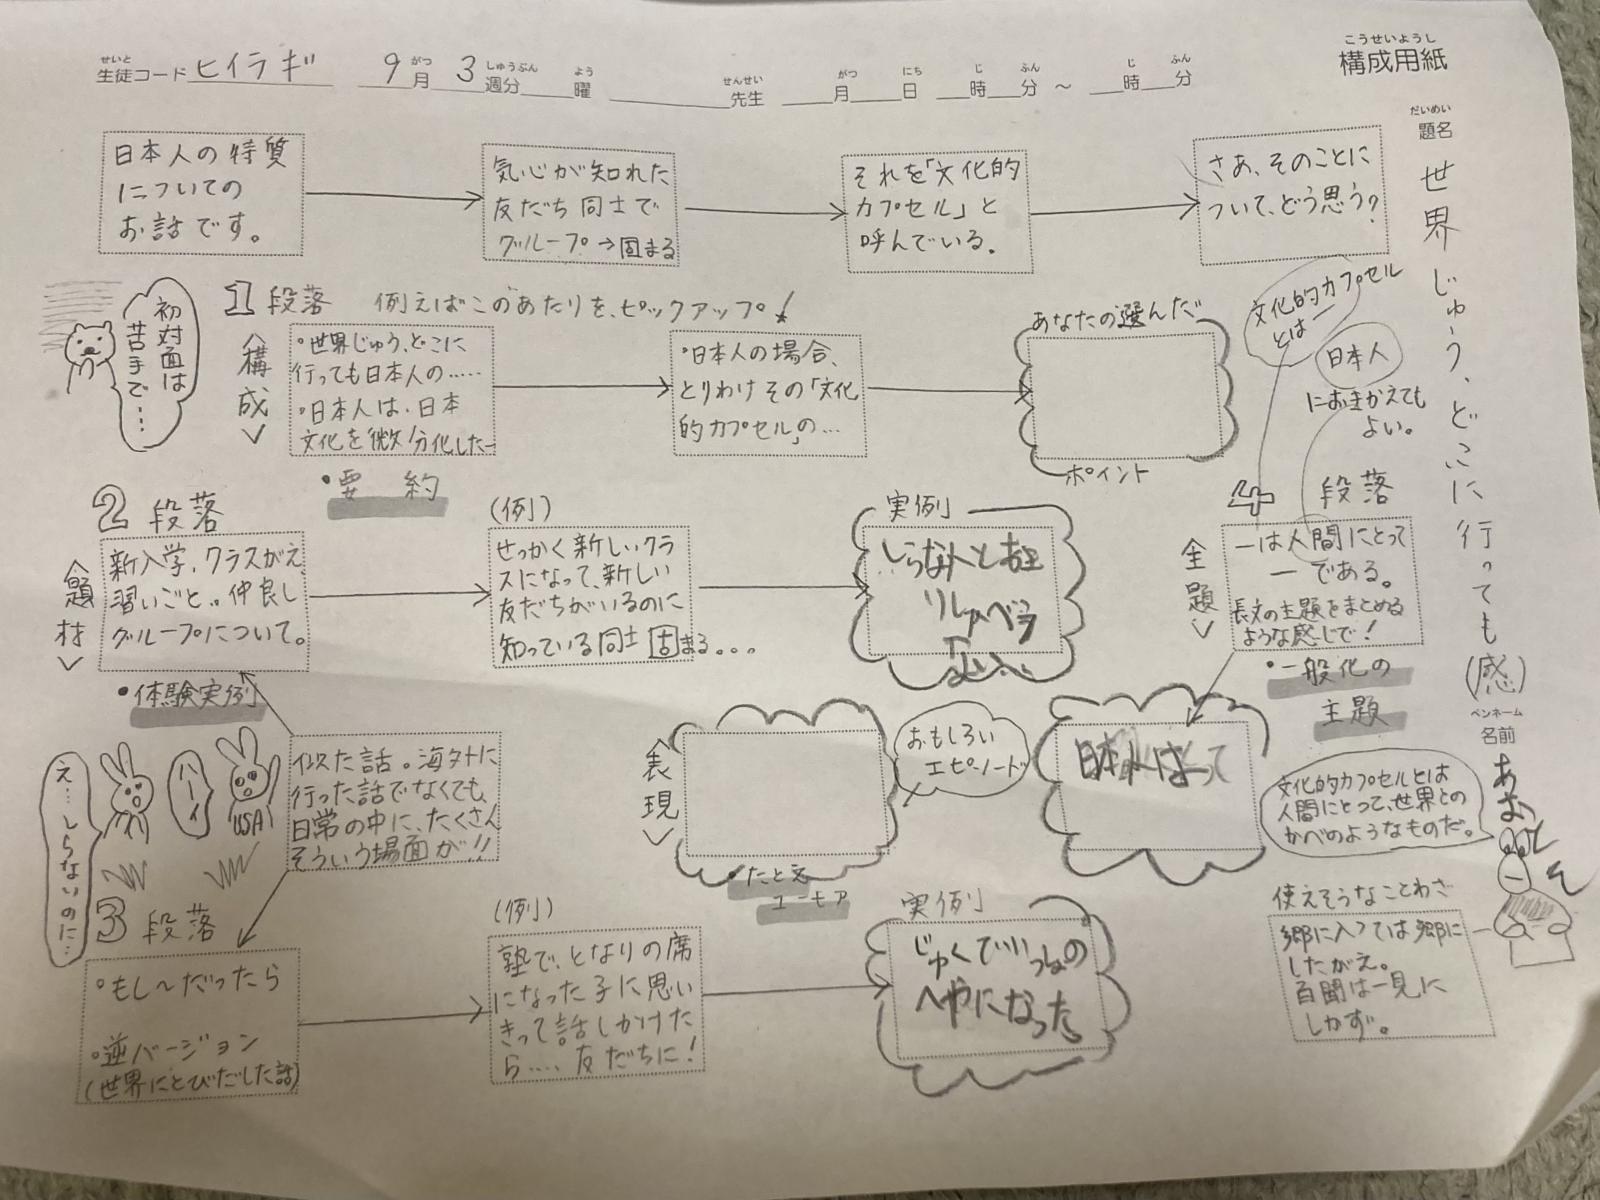 こうせいようし
構成用紙
せいと
生徒コード ヒイラギ 9月 3週分 曜 先生 月 日 時 分 ～ 時 分
がつ しゅうぶん よう せんせい がつ にち じ ふん じ ふん
だいめい
題名
世界じゅう、どこに行っても(感)
ペンネーム
名前
あお
日本人の特質
についての
お話です。
気心が知れた
友だち同士で
グループ→固まる
それを「文化的
カプセル」と
呼んでいる。
さあ、そのことに
ついて、どう思う?
初対面は
苦手で…
1段落 例えばこのあたりを、ピックアップ!
<構成>
・世界じゅう、どこに
行っても日本人の……
・日本人は、日本
文化を微分化した―
・要約
・日本人の場合、
とりわけその「文化
的カプセル」の…
あなたの選んだ
ポイント
文化的カプセル
とは―
日本人
におきかえても
よい。
2段落
<題材>
新入学、クラスがえ、
習いごと‥仲良し
グループについて。
・体験実例
(例)
せっかく新しいクラ
スになって、新しい
友だちがいるのに
知っている同士固まる。。。
実例
しらない人と
4段落
<主題>
―は人間にとって
―である。
長文の主題をまとめる
ような感じで!
・一般化の
主題
え…しらないのに…
ハーイ
USA
似た話。海外に
行った話でなくても、
日常の中に、たくさん
そういう場面が!!
<表現>
・たとえ
ユーモア
おもしろい
エピソード
文化的カプセルとは
人間にとって、世界との
かべのようなものだ。
3段落
・もし～だったら
・逆バージョン
(世界にとびだした話)
(例)
塾で、となりの席
になった子に思い
きって話しかけた
ら…. 友だちに!
実例
じゅくでいっしょの
へやになった
使えそうなことわざ
郷に入っては郷に
したがえ。
百聞は一見に
しかず。